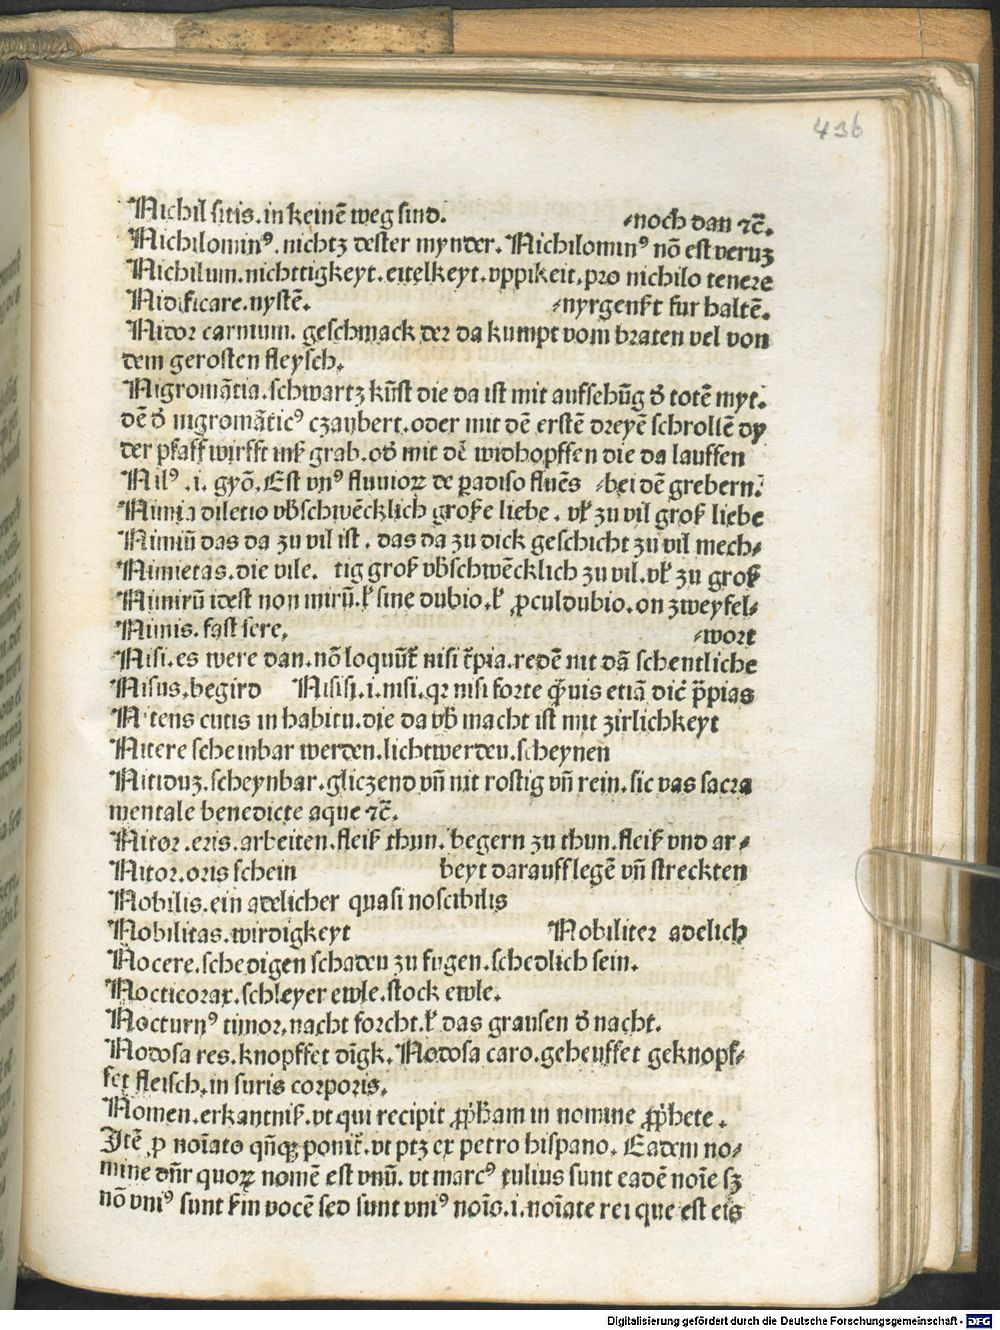 436
Nichil sitis. in keinē weg sind. ⸗noch dan ⁊c̄.
Nichilominꝰ. nichtz dester mynder. Nichilominꝰ nō est veruꝫ
Nichilum. nichttigkeyt. eitelkeyt. vppikeit. pro nichilo tenere
Nidificare. nystē. ⸗nyrgenst fur haltē.
Nidor carnium. geschmack der da kumpt vom braten vel von
dem gerosten fleysch.
Nigromātia. schwartz kūst die da ist mit auffsehūg d̓ totē myt.
dē d̓ nigromāticꝰ czaubert. oder mit dē erstē dreyē schrollē dy
der pfaff wirfft inß grab. od̓ mit dē widhopffen die da lauffen
Nilꝰ .i. gyō. Est vnꝰ fluuioꝝ de paradiso fluēs ⸗bei dē grebern.
Nimia diletio vb̓schwēcklich große liebe. vl̓ zu vil groß liebe
Nimiū das da zu vil ist. das da zu dick geschicht zu vil mech⸗
Nimietas. die vile. tig groß vb̓schwēcklich zu vil. vl̓ zu groß
Nimirū idest non mirū. l̓ sine dubio. l̓ ꝓculdubio. on zweyfel⸗
Nimis. fast sere. ⸗wort
Nisi. es were dan. nō loquūt̓ nisi t̄pia. redē nit dā schentliche
Nisus. begird Nisisi. i. nisi. qꝛ nisi forte q̄uis etiā dic̄ p̄pias
Nitens cutis in habitu. die da vb̓ macht ist mit zirlichkeyt
Nitere scheinbar werden. lichtwerden. scheynen
Nitiduꝫ. scheynbar. gliczend vn̄ nit rostig vn̄ rein. sic vas sacra
mentale benedicte aque ⁊c̄.
Nitor .eris. arbeiten. fleiß thun. begern zu thun. fleiß vnd ar⸗
Nitor. oris schein beyt darauff legē vn̄ streckten
Nobilis. ein adelicher quasi noscibilis
Nobilitas. wirdigkeyt Nobiliter adelich
Nocere. schedigen schaden zu fugen. schedlich sein.
Nocticorax. schleyer ewle. stock ewle.
Nocturnꝰ timor. nacht forcht. l̓ das grausen d̓ nacht.
Nodosa res. knopffet dīgk. Nodosa caro. geheuffet geknopf⸗
fet fleisch. in suris corporis.
Nomen. erkantniß. vt qui recipit ꝓph̓am in nomine ꝓphete.
Itē ꝓ noīato qn̄qꝫ ponit̓. vt ptꝫ ex petro hispano. Eadem no⸗
mine dn̄r quoꝝ nomē est vnū. vt marcꝰ tulius sunt eadē noīe sꝫ
nō vniꝰ sunt b̓m vocē sed sunt vniꝰ noīo. i. noīate rei que est eis
Digitalisierung gefördert durch die Deutsche Forschungsgemeinschaft - DFG